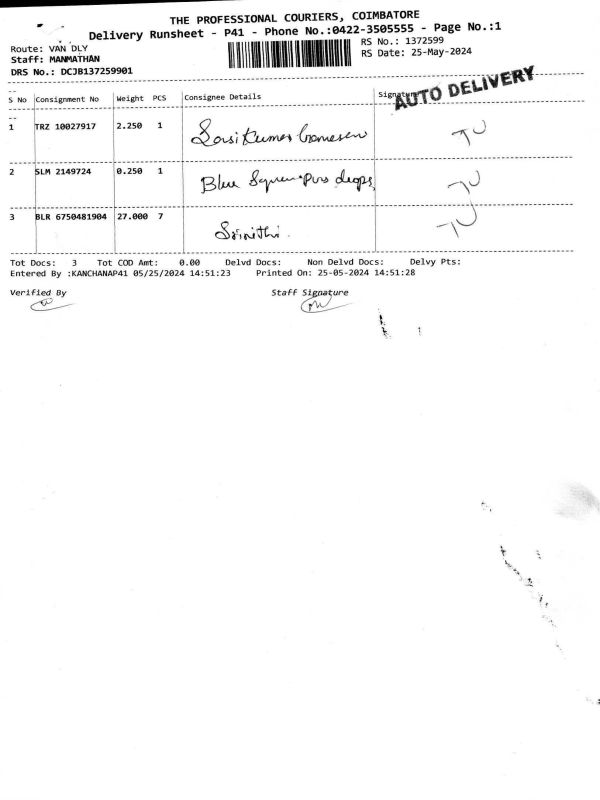 THE PROFESSIONAL COURIERS, COIMBATORE
Delivery Runsheet - P41 - Phone No.:0422-3505555 - Page No.:1
Route: VAN DLY
RS No.: 1372599
Staff: MANMATHAN
RS Date: 25-May-2024
DRS No.: DCJB137259901
S No Consignment No Weight PCS Consignee Details Signature
AUTO DELIVERY
1 TRZ 10027917 2.250 1
2 SLM 2149724 0.250 1 Blue
3 BLR 6750481904 27.000 7 Srinithi.
Tot Docs: 3 Tot COD Amt: 0.00 Delvd Docs: Non Delvd Docs: Delvy Pts:
Entered By :KANCHANAP41 05/25/2024 14:51:23 Printed On: 25-05-2024 14:51:28
Verified By Staff Signature